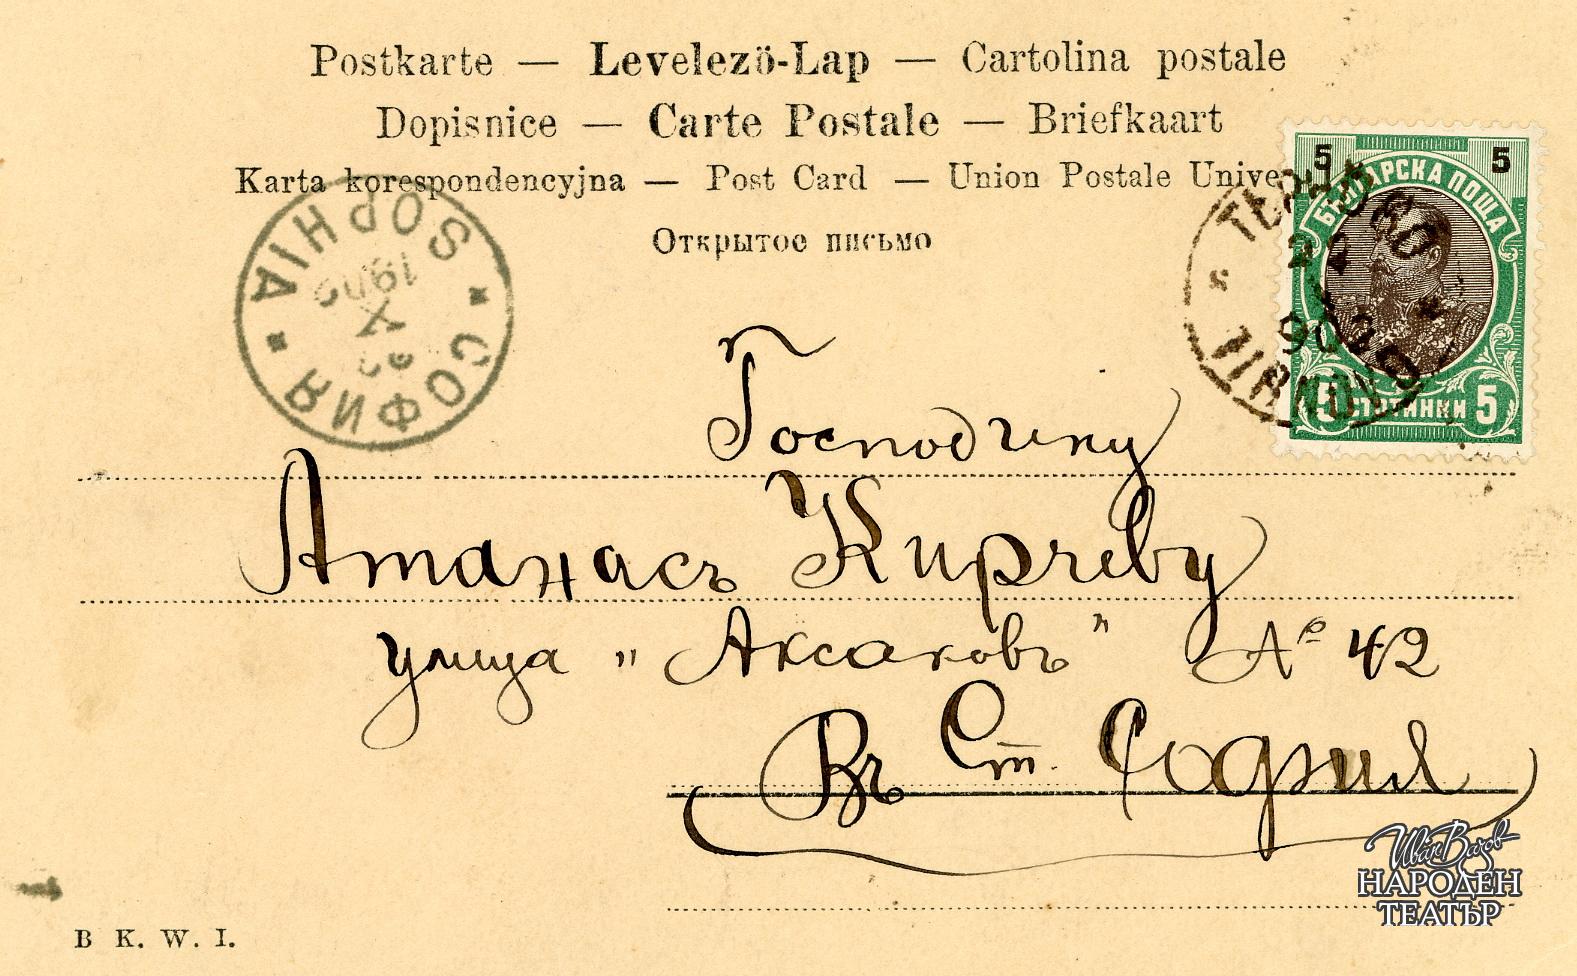 Postkarte — Levelező-Lap — Cartolina postale
Dopisnice — Carte Postale — Briefkaart
Karta korespondencyjna — Post Card — Union Postale Unive
Открытое письмо
SOPHIA
X
СОФИЯ
ТЬРНОВО
22
TIRNOVO
5 5
БЪЛГАРСКА ПОЩА
5 СТОТИНКИ 5
Господину
Атанасъ Кирчеву
улица „Аксаковъ" № 42
Въ Ст. София
B K. W. I.
Иван Вазов
НАРОДЕН
ТЕАТЪР